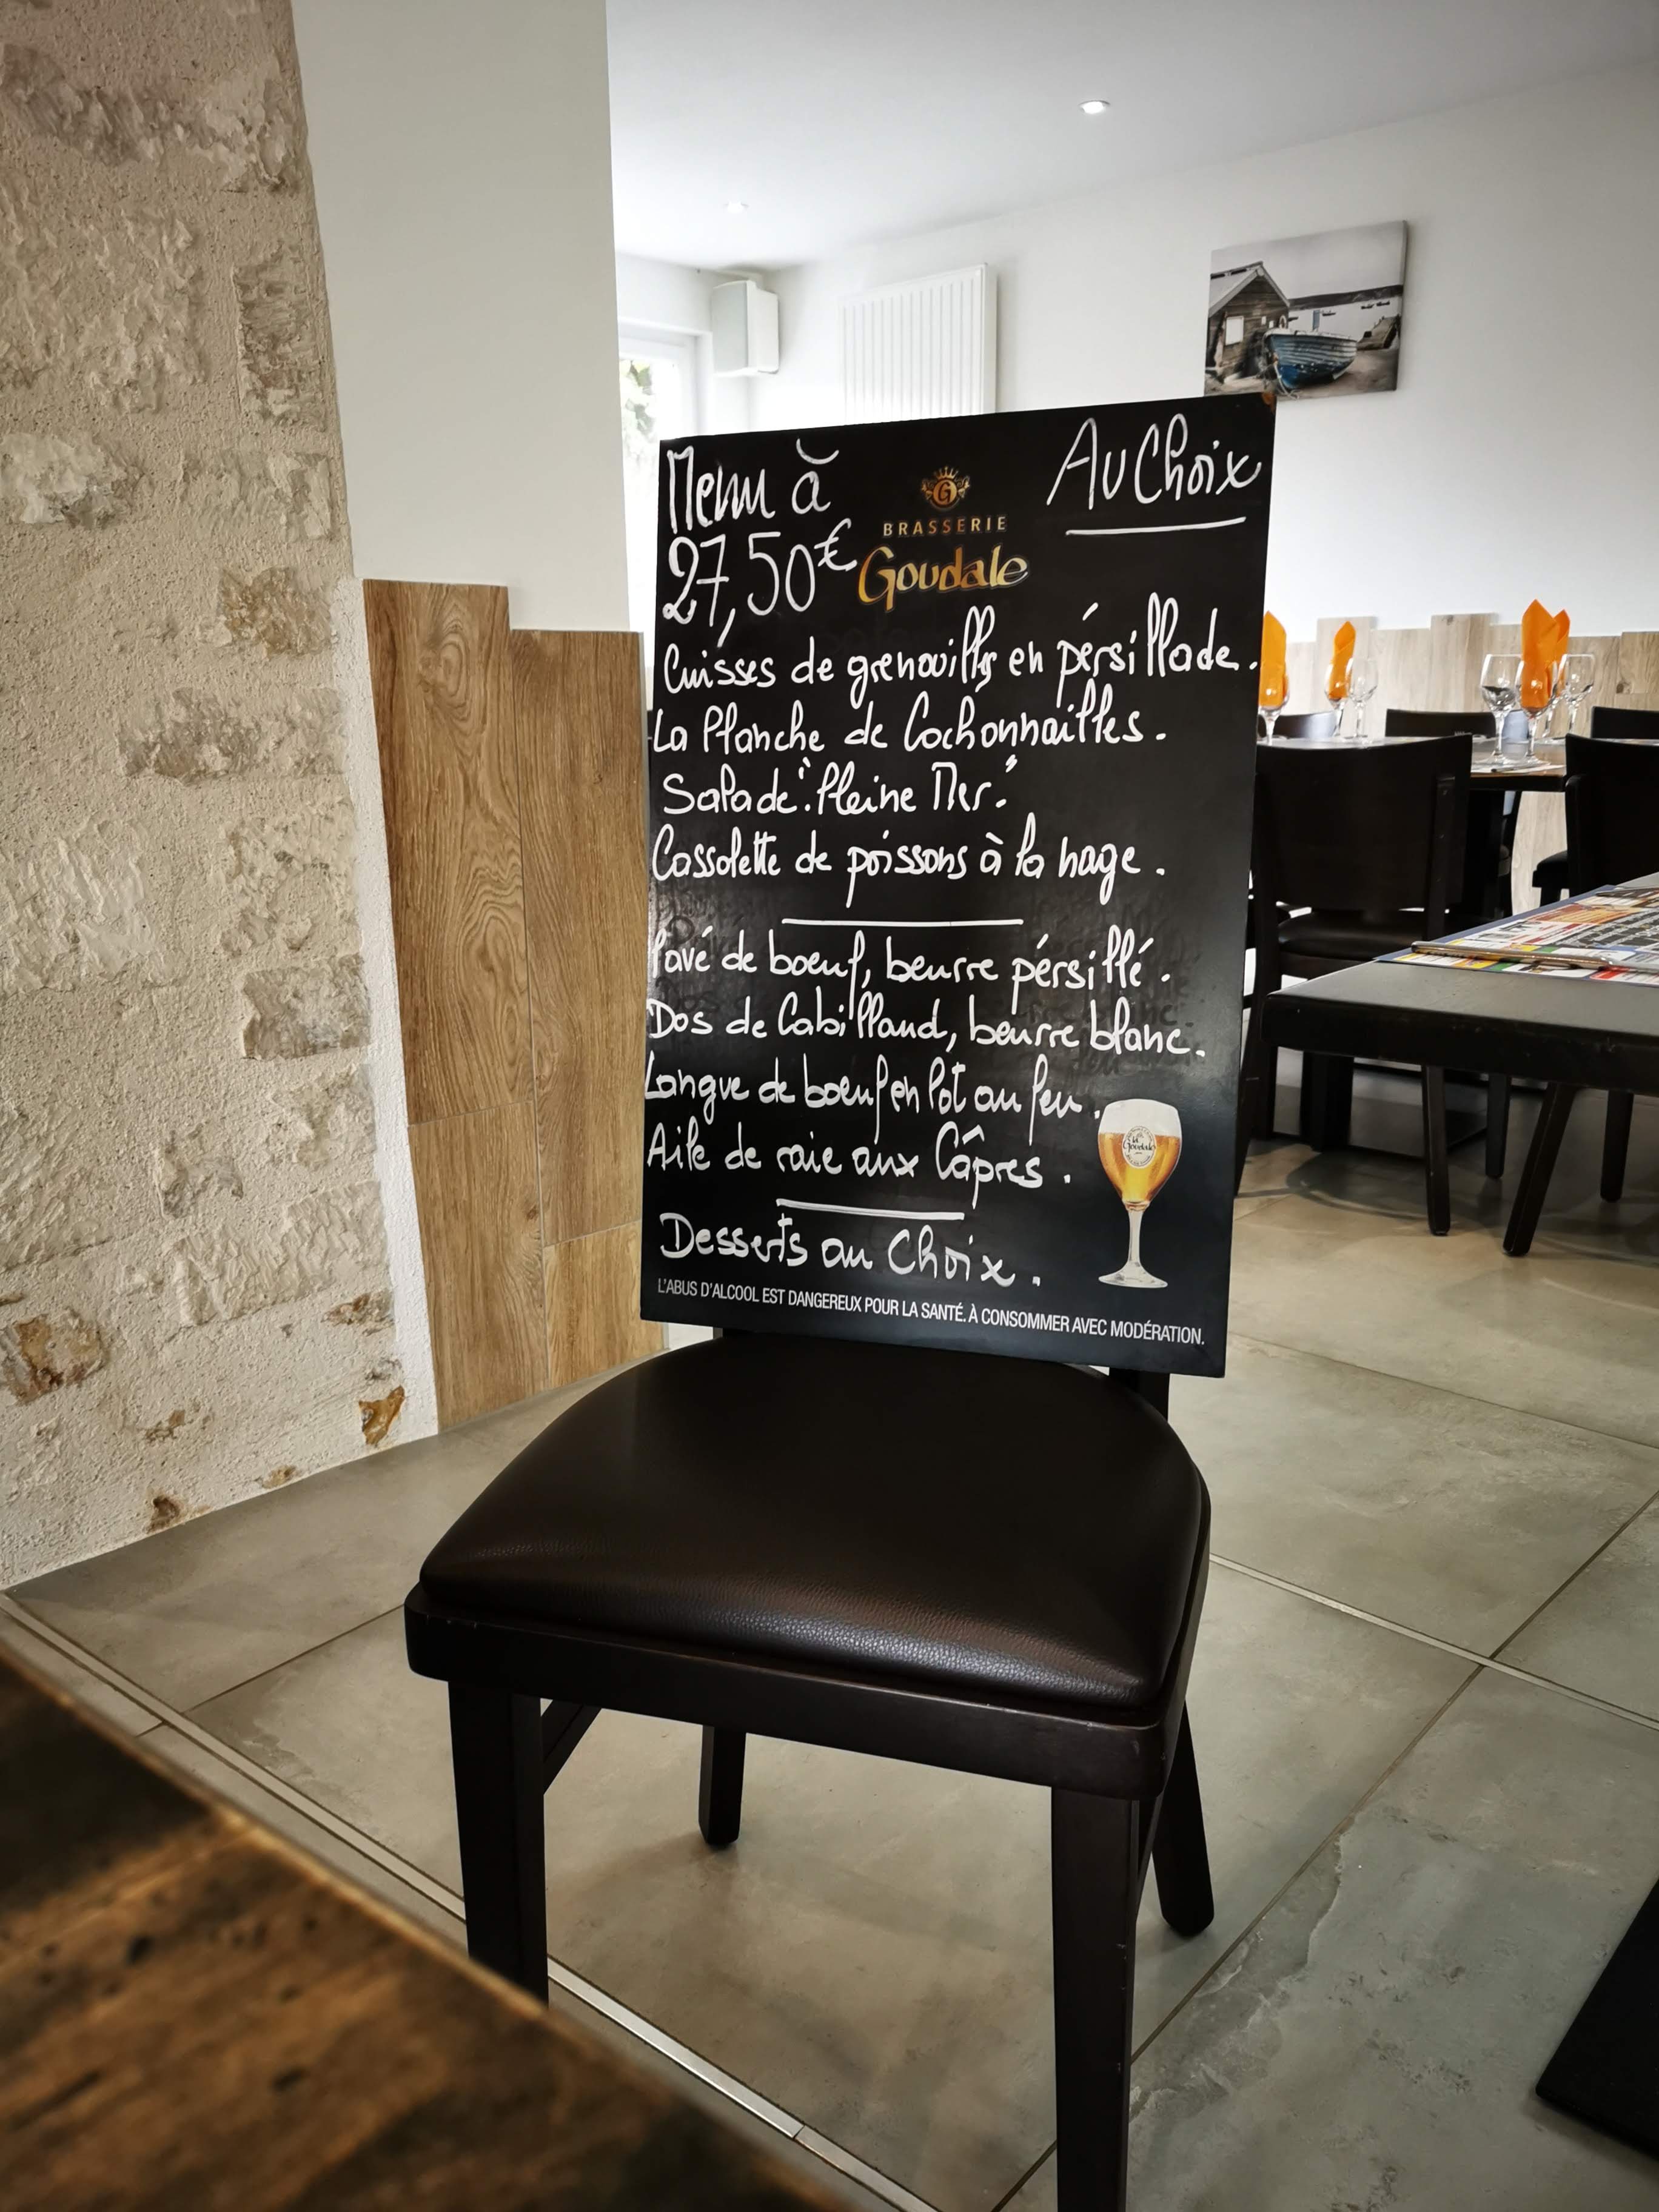 Menu à
27,50€
Au Choix
G
BRASSERIE
Goudale
Cuisses de grenouilles en pérsillade.
La Planche de Cochonnailles.
Salade "Pleine Mer."
Cassolette de poissons à la nage.
Pavé de boeuf, beurre pérsillé.
Dos de Cabillaud, beurre blanc.
Langue de boeuf en Pot au feu.
Aile de raie aux Câpres.
la
Goudale
Desserts au Choix.
L'ABUS D'ALCOOL EST DANGEREUX POUR LA SANTÉ. À CONSOMMER AVEC MODÉRATION.